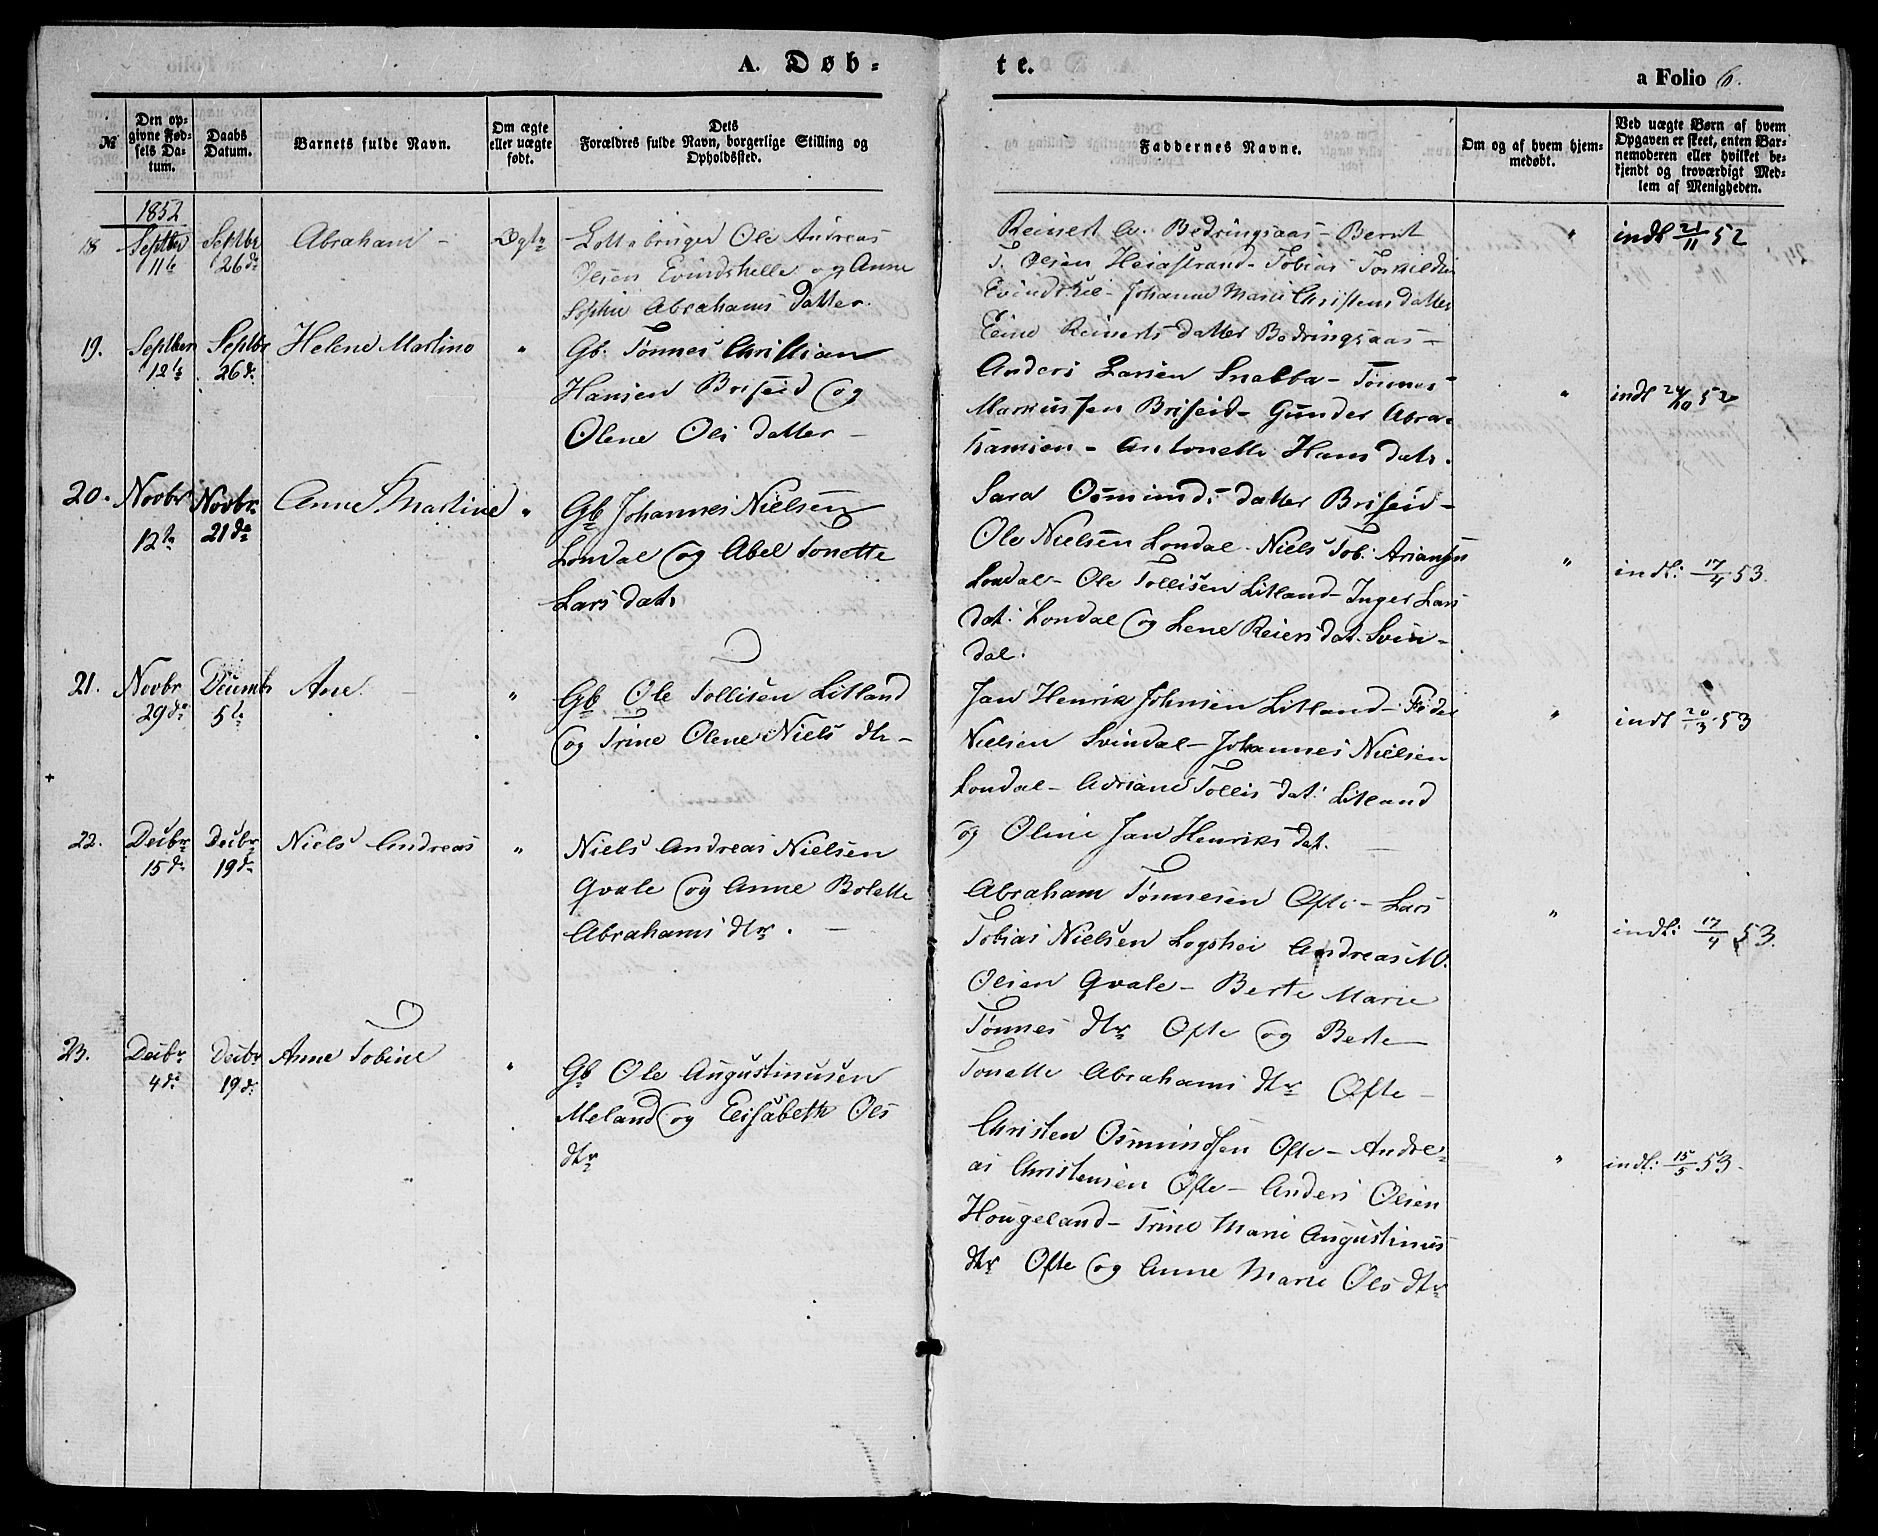 A. Døb-
te.
a Folio 6.
№
Den op-
givne Fød-
sels Da-
tum.
Daabs
Datum.
Barnets fulde Navn.
Om ægte
eller uægte
født.
Dets
Forældres fulde Navn, borgerlige Stilling og
Opholdssted.
Faddernes Navne.
Om og af hvem hjem-
medøbt.
Ved uægte Børn af hvem
Opgaven er skeet, enten Bar-
nemoderen eller hvilket be-
kjendt og troværdigt Med-
lem af Menigheden.
1852
18
Septbr
11te
Septbr
26de
Abraham -
Ægte
Ole Andreas
Olsen Evindshelle og Anne
Sophie Abrahams datter.
Reinert A. Bedringsaas - Bernt
T. Olsen Heiastrand - Tobias Torkildsen
- Johanne Marie Christens datter
Reinerts datter Bedringsaas -
"
indl 21/11 52
19.
Septbr
12te
Septbr
26de
Helene Martine
"
Gb. Tønnes Christian
Hansen Briseid og
Olene Ols datter -
Anders Larsen Snabba - Tønnes
Markussen Briseid - Gunder Abra-
hamsen - Antonette Hans datr.
Sara Osmunds datter Briseid -
"
indl 24/10 52
20.
Novbr
12te
Novbr.
21de
Anne Martine
"
Gb Johannes Nielsen
Londal og Abel Tonette
Lars datr
Ole Nielsen Londal - Niels Tob. Ariansen
Londal - Ole Tollisen Litland - Inger Lars
dat: Londal og Lene Reiers dat. Svin-
dal.
"
indl: 17/4 53.
21.
Novbr
29de
Decembr
5te
Ane. -
"
Gb Ole Tollisen Litland
og Trine Olene Niels dtr -
Jan Henrik Johnsen Litland -
Nielsen Svindal - Johannes Nielsen
Londal - Adriane Tollis dat: Litland
og Oline Jan Henriks dat. -
"
indl 20/3 53
22.
Decbr
15de
Decbr
19de
Niels Andreas
"
Niels Andreas Nielsen
Qvale og Anne Bolette
Abrahams dtr. -
Abraham Tønnesen Ofte - Lars
Tobias Nielsen Logshei Andreas M.
Olsen Qvale - Berte Marie
Tønnes dtr Ofte og Berte
Tonette Abrahams dtr Ofte -
"
indl: 17/4 53.
23.
Decbr
4de
Decbr
19de
Anne Tobine
"
Gb Ole Augustinusen
Meland og Elisabeth Ols
dtr
Christen Osmundsen Ofte - Andre-
as Christensen Ofte - Anders Olsen
Hougeland - Trine Marie Augustinus
dtr Ofte og Anne Marie Ols dtr
"
indl: 15/5 53.